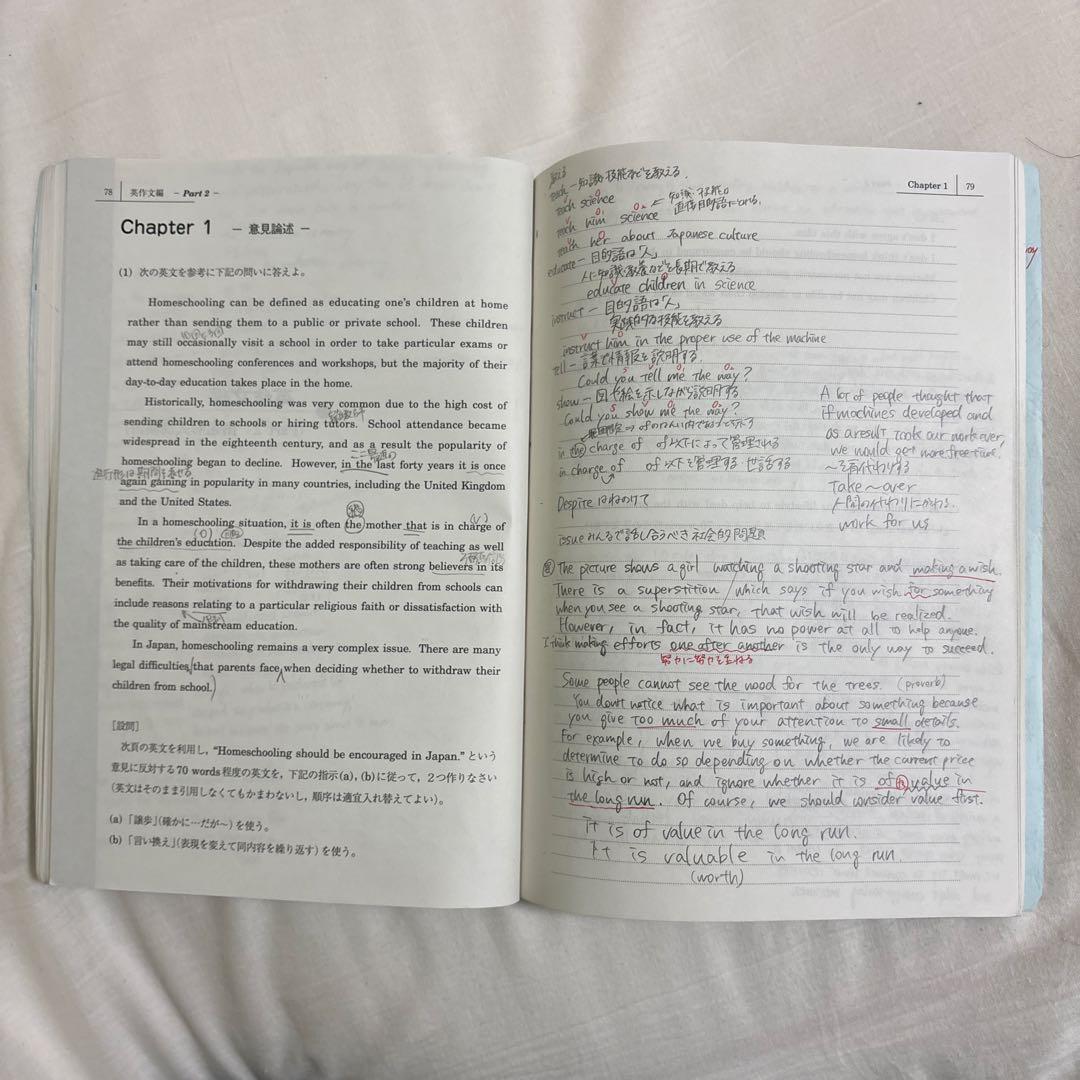 78 英作文編 － Part 2 －
Chapter 1 － 意見論述 －
(1) 次の英文を参考に下記の問いに答えよ。
Homeschooling can be defined as educating one's children at home
rather than sending them to a public or private school. These children
may still occasionally visit a school in order to take particular exams or
attend homeschooling conferences and workshops, but the majority of their
day-to-day education takes place in the home.
Historically, homeschooling was very common due to the high cost of
sending children to schools or hiring tutors. School attendance became
widespread in the eighteenth century, and as a result the popularity of
homeschooling began to decline. However, in the last forty years it is once
again gaining in popularity in many countries, including the United Kingdom
and the United States.
In a homeschooling situation, it is often the mother that is in charge of
the children's education. Despite the added responsibility of teaching as well
as taking care of the children, these mothers are often strong believers in its
benefits. Their motivations for withdrawing their children from schools can
include reasons relating to a particular religious faith or dissatisfaction with
the quality of mainstream education.
In Japan, homeschooling remains a very complex issue. There are many
legal difficulties that parents face when deciding whether to withdraw their
children from school.
［設問］
次頁の英文を利用し，“Homeschooling should be encouraged in Japan.” という
意見に反対する 70 words 程度の英文を，下記の指示(a)，(b)に従って，2つ作りなさい
(英文はそのまま引用しなくてもかまわないし，順序は適宜入れ替えてよい)。
(a) 「譲歩」(確かに…だが〜) を使う。
(b) 「言い換え」(表現を変えて同内容を繰り返す) を使う。
Chapter 1 79
教える
teach ー 知識・技能などを教える.
teach science
teach him science ← 知識・技能が
直接目的語にとれる.
teach her about Japanese culture
educate ー 目的語は「人」
人に知識・教養などを長期で教える
educate children in science
instruct ー 目的語は「人」
実践的な技能を教える
instruct him in the proper use of the machine
tell ー 言葉で情報を説明する.
Could you tell me the way?
show ー 図や絵を示しながら説明する
Could you show me the way?
in the charge of of以下によって管理される
in charge of of以下を管理する 世話する
Despite はねのけて
issue みんなで話し合うべき社会的問題
A lot of people thought that
if machines developed and
as a result took our work over,
we would get more free time.
〜を肩代わりする
Take 〜 over
人間の代わりにかわる.
work for us
The picture shows a girl watching a shooting star and making a wish.
There is a superstition which says if you wish for something
when you see a shooting star, that wish will be realized.
However, in fact, it has no power at all to help anyone.
I think making efforts one after another is the only way to succeed.
努力に努力を重ねる
Some people cannot see the wood for the trees. (proverb)
You don't notice what is important about something because
you give too much of your attention to small details.
For example, when we buy something, we are likely to
determine to do so depending on whether the current price
is high or not, and ignore whether it is of value in
the long run. Of course, we should consider value first.
it is of value in the long run.
It is valuable in the long run.
(worth)